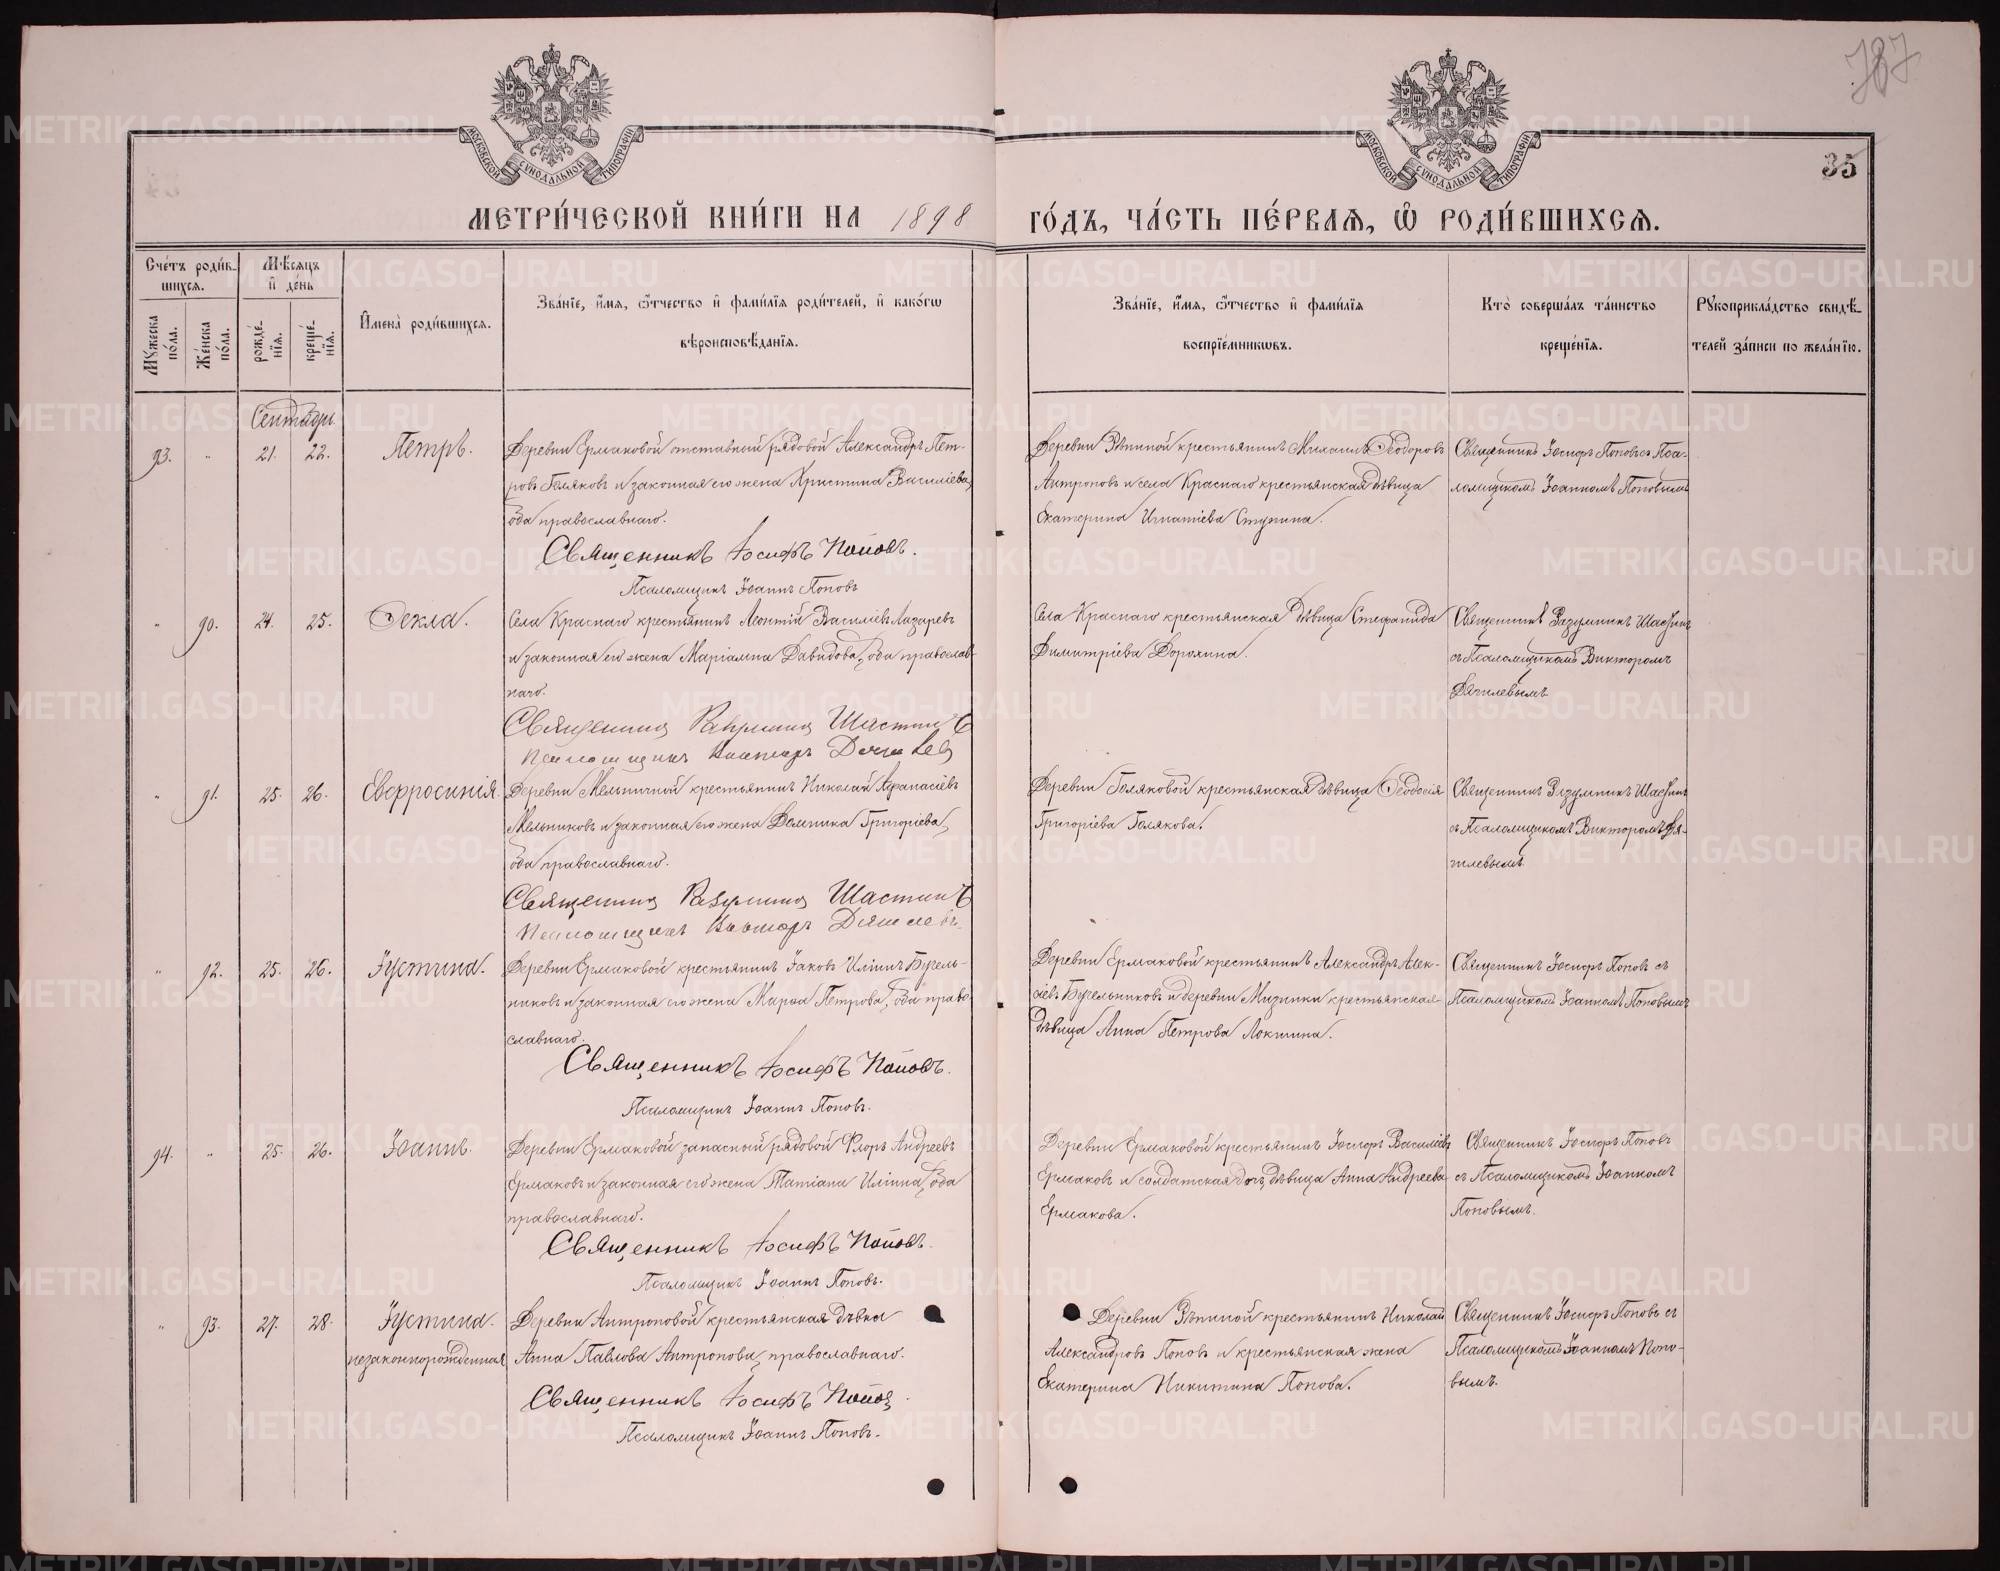 787
35
МОСКОВСКОЙ СѴНОДАЛЬНОЙ ТИПОГРАФІИ
МОСКОВСКОЙ СѴНОДАЛЬНОЙ ТИПОГРАФІИ
МЕТРИ́ЧЕСКОЙ КНИ́ГИ НА 1898 ГО́ДЪ, ЧА́СТЬ ПЕ́РВАѦ, Ѿ РОДИ́ВШИХСѦ.
Сче́тъ роди́в-
шихсѧ.
Мѣ́сѧцъ
и҆ де́нь
Мꙋ́жеска
по́ла.
Же́нска
по́ла.
рожде́-
нїѧ.
креще́-
нїѧ.
И҆мена̀ роди́вшихсѧ.
Зва́нїе, и҆́мѧ, ѻ҆́тчество и҆ фами́лїѧ роди́телей, и҆ како́гѡ
вѣроисповѣ́данїѧ.
Зва́нїе, и҆́мѧ, ѻ҆́тчество и҆ фами́лїѧ
воспрїе́мникѡвъ.
Кто̀ соверша́лъ та́инство
креще́нїѧ.
Рꙋкоприкла́дство свидѣ́-
телей за́писи по жела́нїю.
Сентябрь
93. " 21. 22. Петръ. Деревни Ермаковой отставный рядовой Александръ Пет-
ровъ Голяковъ и законная его жена Христина Василіева,
оба православнаго.
Священникъ Іосифъ Поповъ.
Псаломщикъ Іоаннъ Поповъ
Деревни Рѣпиной крестьянинъ Михаилъ Ѳеодоровъ
Антроповъ и села Краснаго крестьянская дѣвица
Екатерина Игнатіева Ступина.
Священникъ Іосифъ Поповъ съ Пса-
ломщикомъ Іоанномъ Поповымъ
" 90. 24. 25. Ѳекла. Села Краснаго крестьянинъ Леонтій Василіевъ Лазаревъ
и законная его жена Маріамна Давидова, оба православ-
наго.
Священникъ Разумникъ Шастинъ
Псаломщикъ Викторъ Дягилевъ
Села Краснаго крестьянская дѣвица Стефанида
Димитріева Дорохина.
Священникъ Разумникъ Шастинъ
съ Псаломщикомъ Викторомъ
Дягилевымъ
" 91. 25. 26. Евфросинія. Деревни Мельничной крестьянинъ Николай Аѳанасіевъ
Мельниковъ и законная его жена Домника Григоріева,
оба православнаго.
Священникъ Разумникъ Шастинъ
Псаломщикъ Викторъ Дягилевъ.
Деревни Голяковой крестьянская дѣвица Ѳеодосія
Григоріева Голякова.
Священникъ Разумникъ Шастинъ
съ Псаломщикомъ Викторомъ Дя-
гилевымъ
" 92. 25. 26. Іустина. Деревни Ермаковой крестьянинъ Іаковъ Иліинъ Бучель-
никовъ и законная его жена Марѳа Петрова, оба право-
славнаго.
Священникъ Іосифъ Поповъ.
Псаломщикъ Іоаннъ Поповъ.
Деревни Ермаковой крестьянинъ Александръ Алек-
сіевъ Бучельниковъ и деревни Мизинки крестьянская
дѣвица Анна Петрова Локтина.
Священникъ Іосифъ Поповъ съ
Псаломщикомъ Іоанномъ Поповымъ
94. " 25. 26. Іоаннъ. Деревни Ермаковой запасный рядовой Флоръ Андреевъ
Ермаковъ и законная его жена Татіана Иліина, оба
православнаго.
Священникъ Іосифъ Поповъ.
Псаломщикъ Іоаннъ Поповъ.
Деревни Ермаковой крестьянинъ Іосифъ Василіевъ
Ермаковъ и солдатская дочь, дѣвица Анна Андреева
Ермакова.
Священникъ Іосифъ Поповъ
съ Псаломщикомъ Іоанномъ
Поповымъ.
" 93. 27. 28. Іустина. Деревни Антроповой крестьянская дѣвка
незаконнорожденная Анна Павлова Антропова, православнаго.
Священникъ Іосифъ Поповъ
Псаломщикъ Іоаннъ Поповъ.
Деревни Рѣпиной крестьянинъ Николай
Александровъ Поповъ и крестьянская жена
Екатерина Никитина Попова.
Священникъ Іосифъ Поповъ съ
Псаломщикомъ Іоанномъ Попо-
вымъ.
METRIKI.GASO-URAL.RU